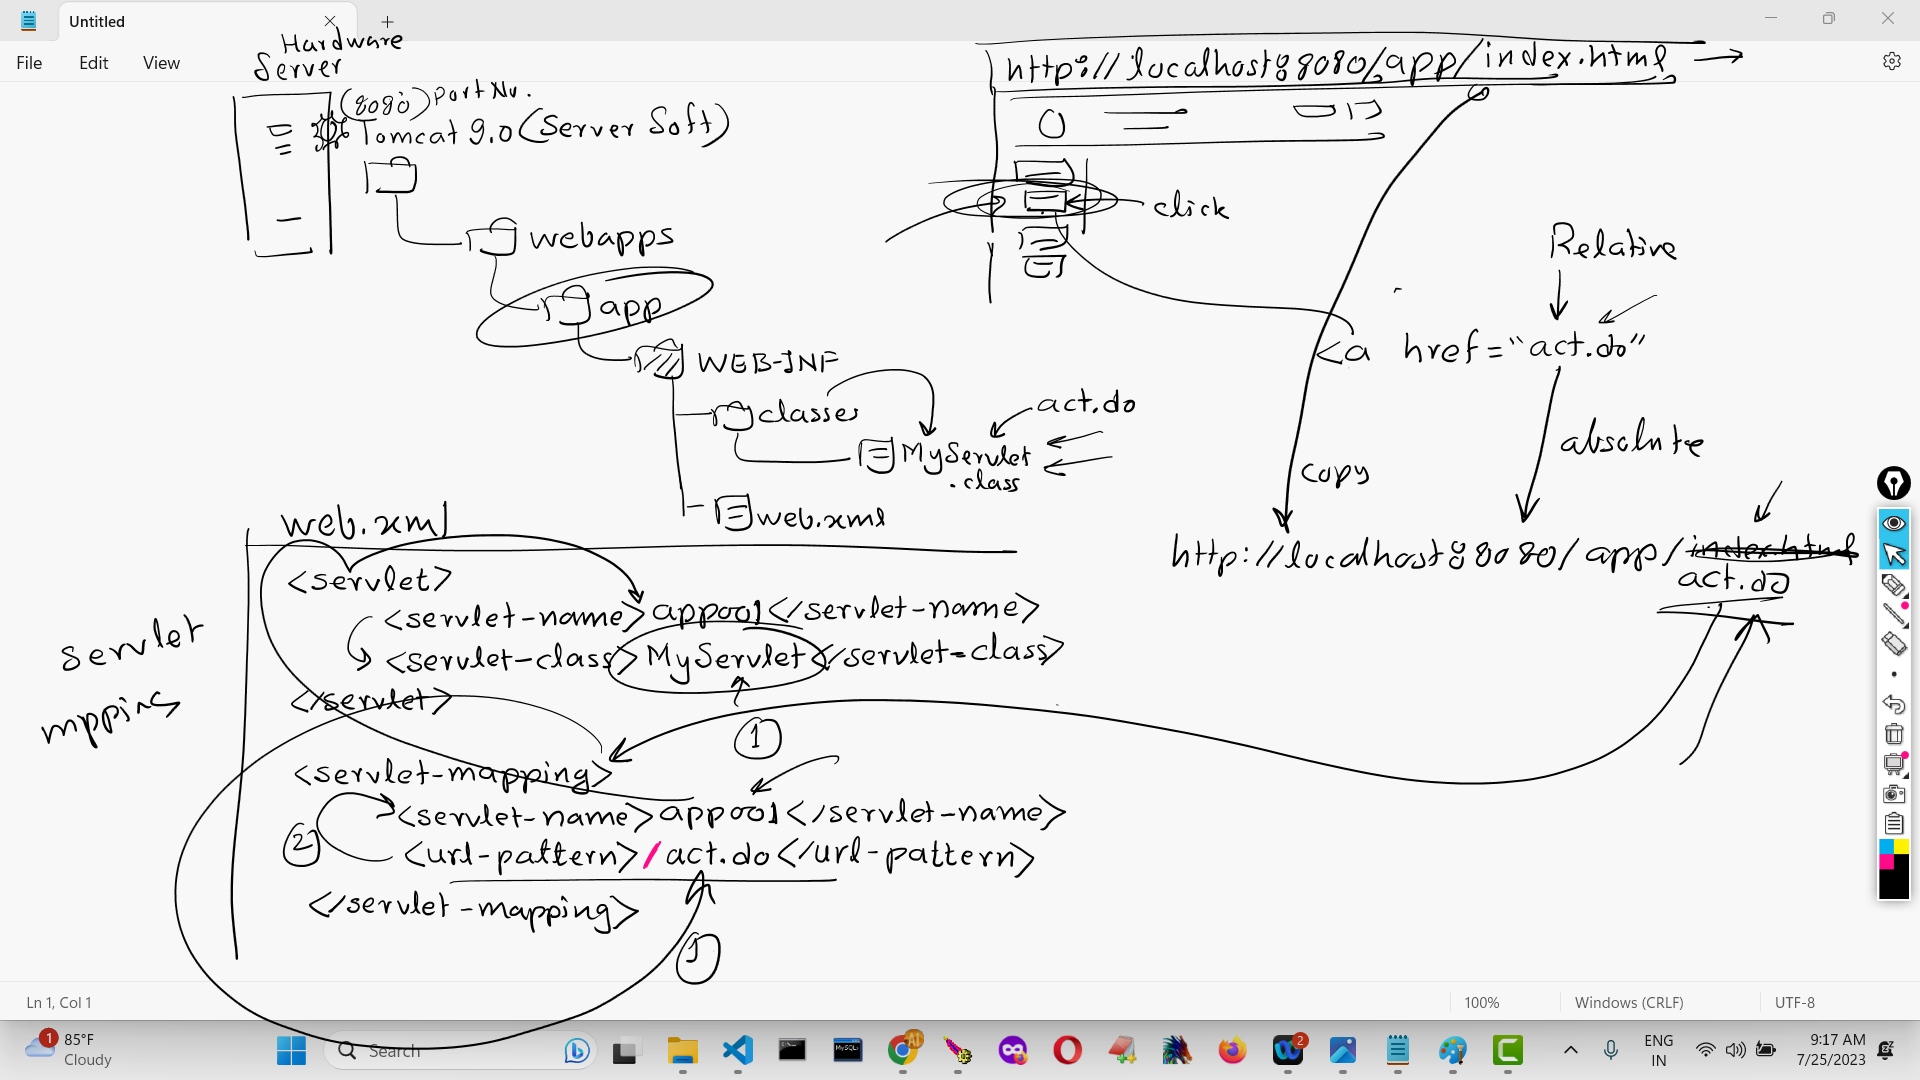 Untitled
File Edit View
Hardware
Server
(8080) Port No.
Tomcat 9.0 (Server Soft)
webapps
app
WEB-INF
classes
act.do
MyServlet
.class
web.xml
http://localhost:8080/app/index.html
click
Relative
<a href="act.do"
absolute
copy
http://localhost:8080/app/index.html
act.do
servlet
mpping
web.xml
<servlet>
<servlet-name>app001</servlet-name>
<servlet-class>MyServlet</servlet-class>
</servlet>
1
<servlet-mapping>
<servlet-name>app001</servlet-name>
2
<url-pattern>/act.do</url-pattern>
</servlet-mapping>
1
Ln 1, Col 1
100%
Windows (CRLF)
UTF-8
1
85°F
Cloudy
Search
MySQL
AI
2
ENG
IN
9:17 AM
7/25/2023